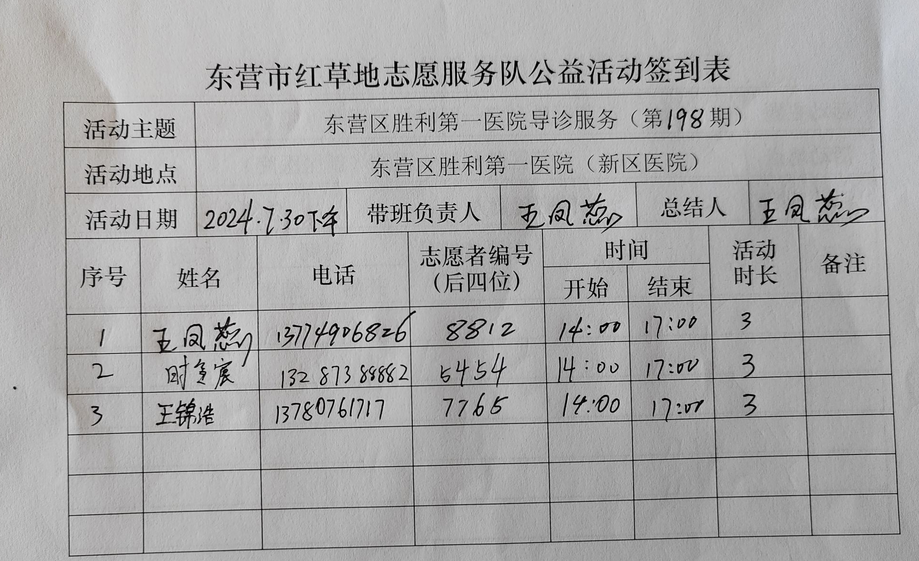 东营市红草地志愿服务队公益活动签到表
活动主题 东营区胜利第一医院导诊服务（第198期）
活动地点 东营区胜利第一医院（新区医院）
活动日期 2024.7.30下午 带班负责人 王凤蕊 总结人 王凤蕊
序号 姓名 电话 志愿者编号（后四位） 时间 开始 结束 活动时长 备注
1 王凤蕊 13774906826 8812 14:00 17:00 3
2 时 宸 13287388882 5454 14:00 17:00 3
3 王锦浩 13780761717 7765 14:00 17:00 3